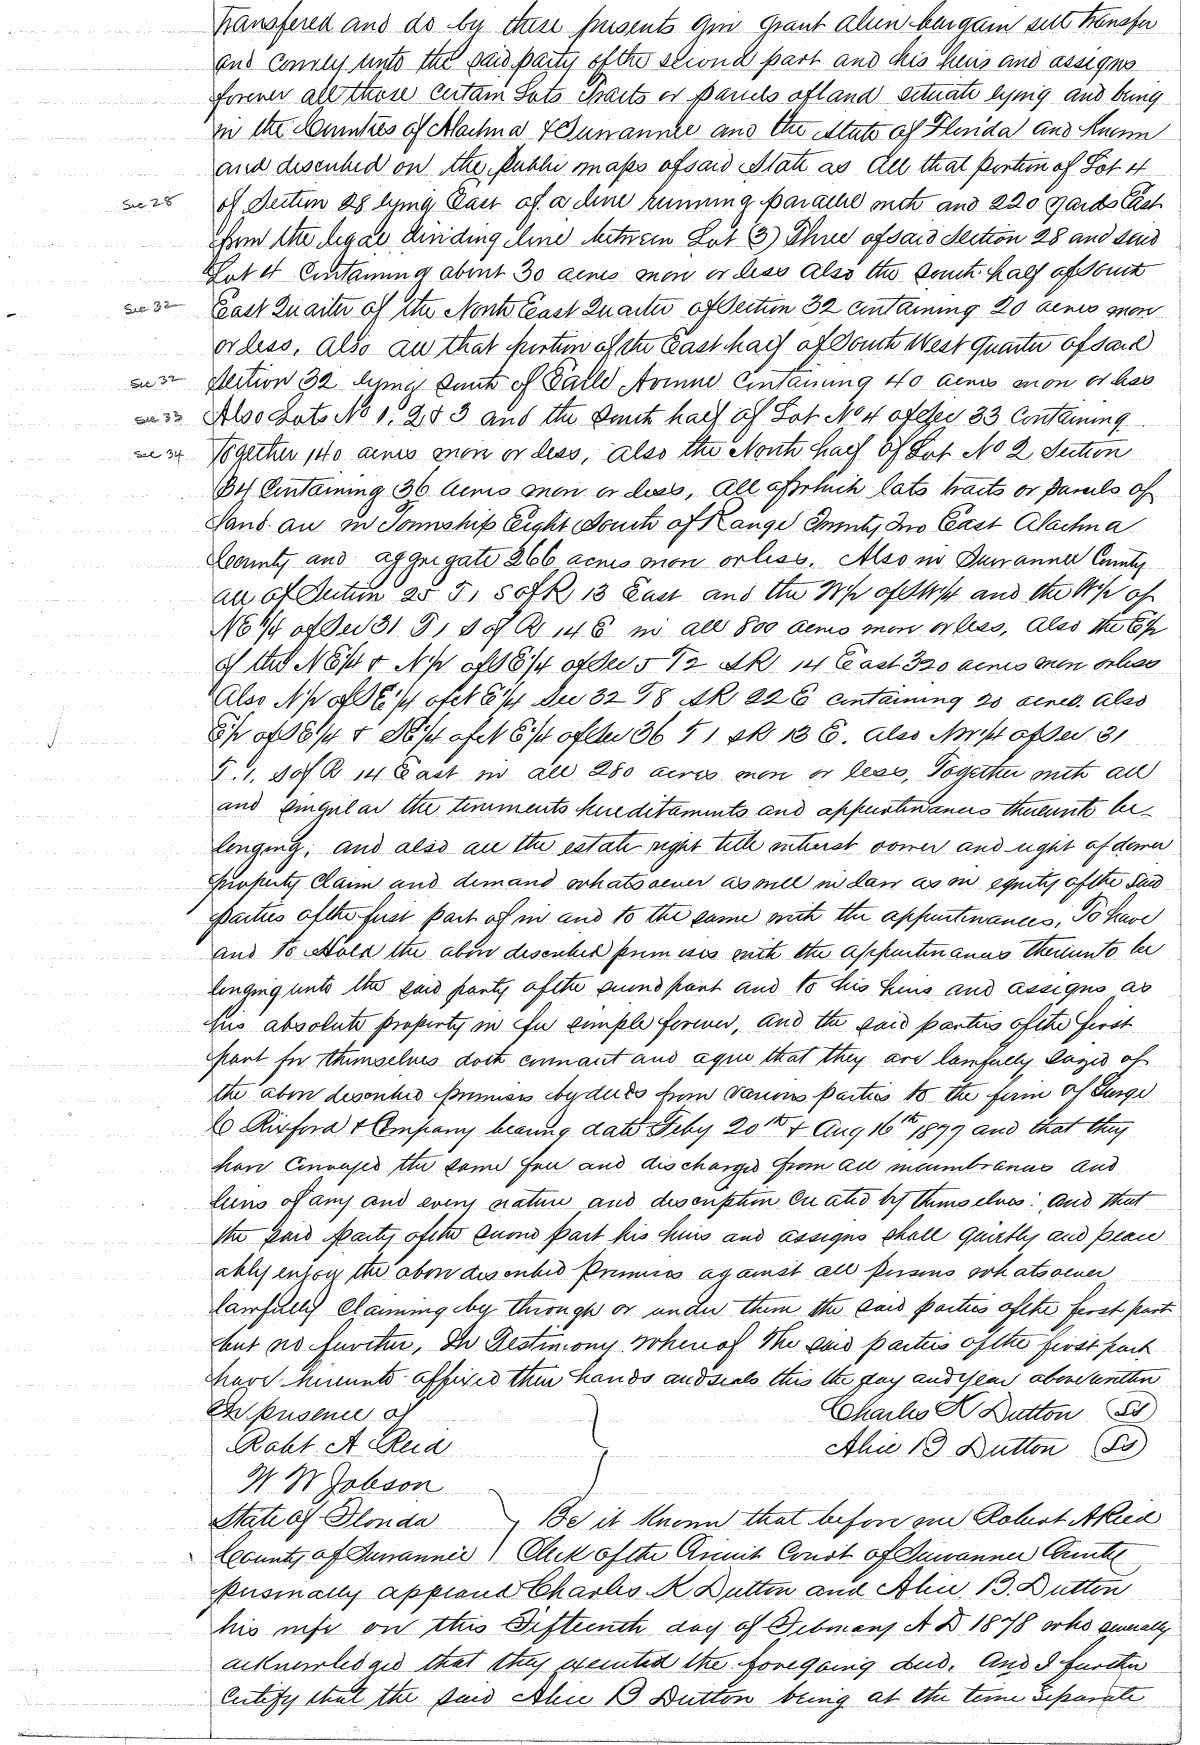 transfered and do by these presents give grant alien bargain sell transfer
and convey unto the said party of the second part and his heirs and assigns
forever all those certain Lots Tracts or parcels of land situate lying and being
in the Counties of Alachua & Suwannee and the State of Florida and known
and described on the public maps of said State as All that portion of Lot 4
Sec 28 of Section 28 lying East of a line running parallel with and 220 yards East
from the legal dividing line between Lot (3) Three of said Section 28 and said
Lot 4 Containing about 30 acres more or less also the South half of South
Sec 32 East Quarter of the North East Quarter of Section 32 containing 20 acres more
or less, also all that portion of the East half of South West quarter of said
Sec 32 Section 32 lying South of Earle Avenue containing 40 acres more or less
Sec 33 Also Lots No 1, 2 & 3 and the South half of Lot No 4 of Sec 33 Containing
Sec 34 together 140 acres more or less, also the North half of Lot No 2 Section
34 Containing 36 acres more or less, all of which lots tracts or parcels of
land are in Township Eight South of Range Twenty Two East Alachua
County and aggregate 266 acres more or less. Also in Suwannee County
all of Section 25 T 1 S of R 13 East and the W½ of SW¼ and the W½ of
NE¼ of Sec 31 T 1 S of R 14 E in all 800 acres more or less, also the E½
of the NE¼ & N½ of SE¼ of Sec 5 T2 SR 14 East 320 acres more or less
Also N½ of SE¼ of NE¼ Sec 32 T8 SR 22 E containing 20 acres also
E½ of SE¼ & SE¼ of NE¼ of Sec 36 T 1 SR 13 E. also NW¼ of Sec 31
T. 1. S of R 14 East in all 280 acres more or less, Together with all
and singular the tenements hereditaments and appurtenances thereunto be-
longing, and also all the estate right title interest dower and right of dower
property claim and demand whatsoever as well in law as in equity of the said
parties of the first part of in and to the same with the appurtenances, To have
and to Hold the above described premises with the appurtenances thereunto be
longing unto the said party of the second part and to his heirs and assigns as
his absolute property in fee simple forever, and the said parties of the first
part for themselves doth covenant and agree that they are lawfully seized of
the above described premises by deeds from various parties to the firm of George
C Rixford & Company bearing date Feby 20th & Aug 16th 1877 and that they
have conveyed the same free and discharged from all incumbrances and
liens of any and every nature and description created by themselves: and that
the said party of the second part his heirs and assigns shall quietly and peace
ably enjoy the above described premises against all persons whatsoever
lawfully claiming by through or under them the said parties of the first part
but no further, In Testimony whereof The said parties of the first part
have hereunto affixed their hands and seals this the day and year above written
In presence of Charles K Dutton (LS)
Robt A Reid Alice B Dutton (LS)
W W Jobson
State of Florida Be it known that before me Robert A Reid
County of Suwannee Clerk of the Circuit Court of Suwannee County
personally appeared Charles K Dutton and Alice B. Dutton
his wife on this Fifteenth day of February A D 1878 who severally
acknowledged that they executed the foregoing deed. And I further
certify that the said Alice B Dutton being at the time separate